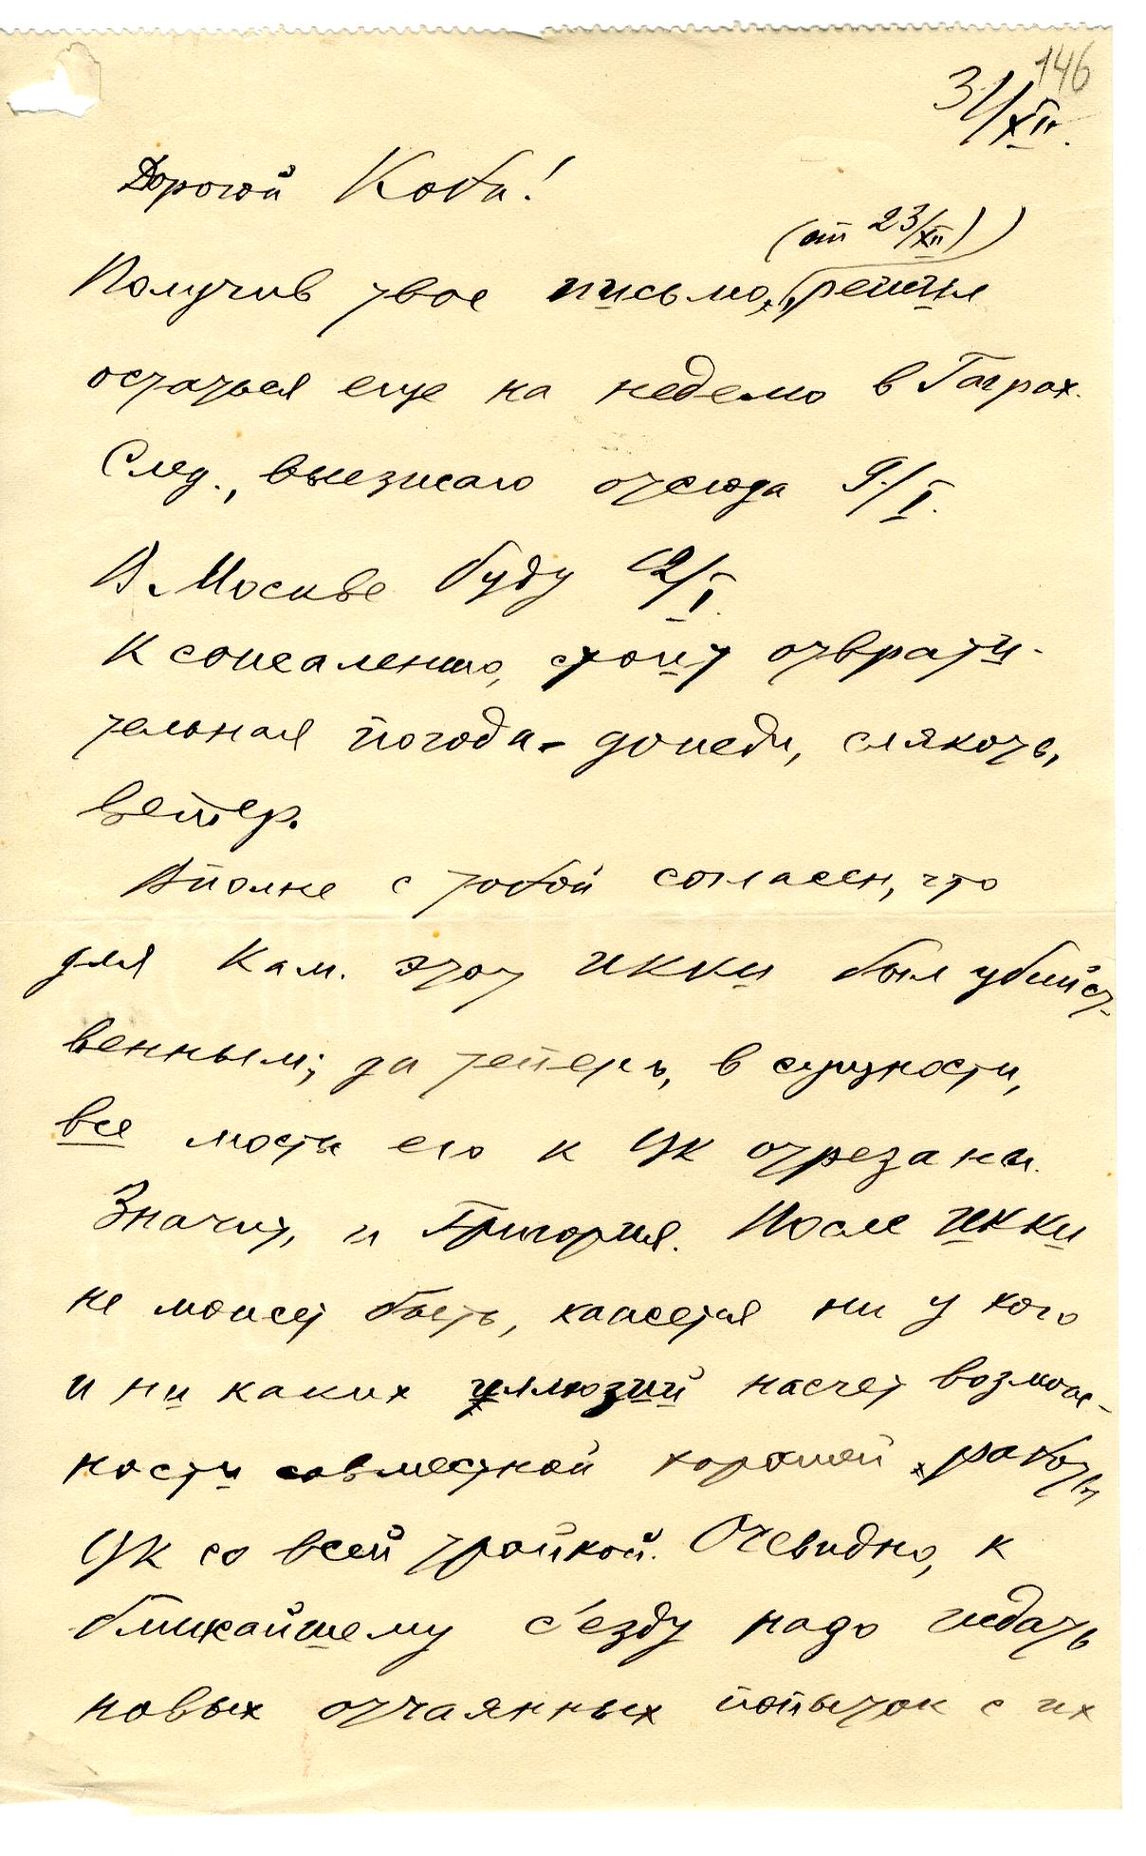 146
31/XII.
Дорогой Коба!
(от 23/XII)
Получив твое письмо, решил
остаться еще на неделю в Гаграх.
След., выезжаю отсюда 9/I.
В Москве буду 12/I.
К сожалению, стоит отврати-
тельная погода - дожди, слякоть,
ветер.
Вполне с тобой согласен, что
для Кам. этот ИККИ был убийст-
венным; да теперь, в сущности,
все мосты его к ЦК отрезаны.
Значит, и Григория. После ИККИ
не может быть, кажется ни у кого
и ни каких иллюзий насчет возмож-
ности совместной хорошей работы
ЦК со всей тройкой. Очевидно, к
ближайшему с'езду надо ждать
новых отчаянных попыток с их